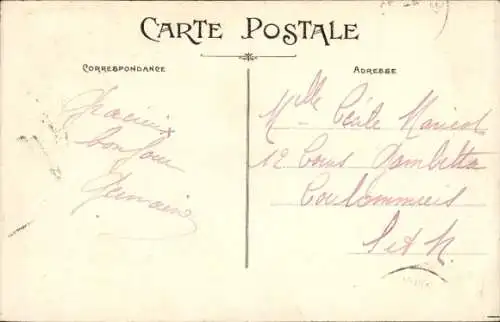 CARTE POSTALE
CORRESPONDANCE
ADRESSE
Gracieux
bonjour
Germaine
Mlle Cécile
12 Cours Gambetta
Coulommiers
S et M.